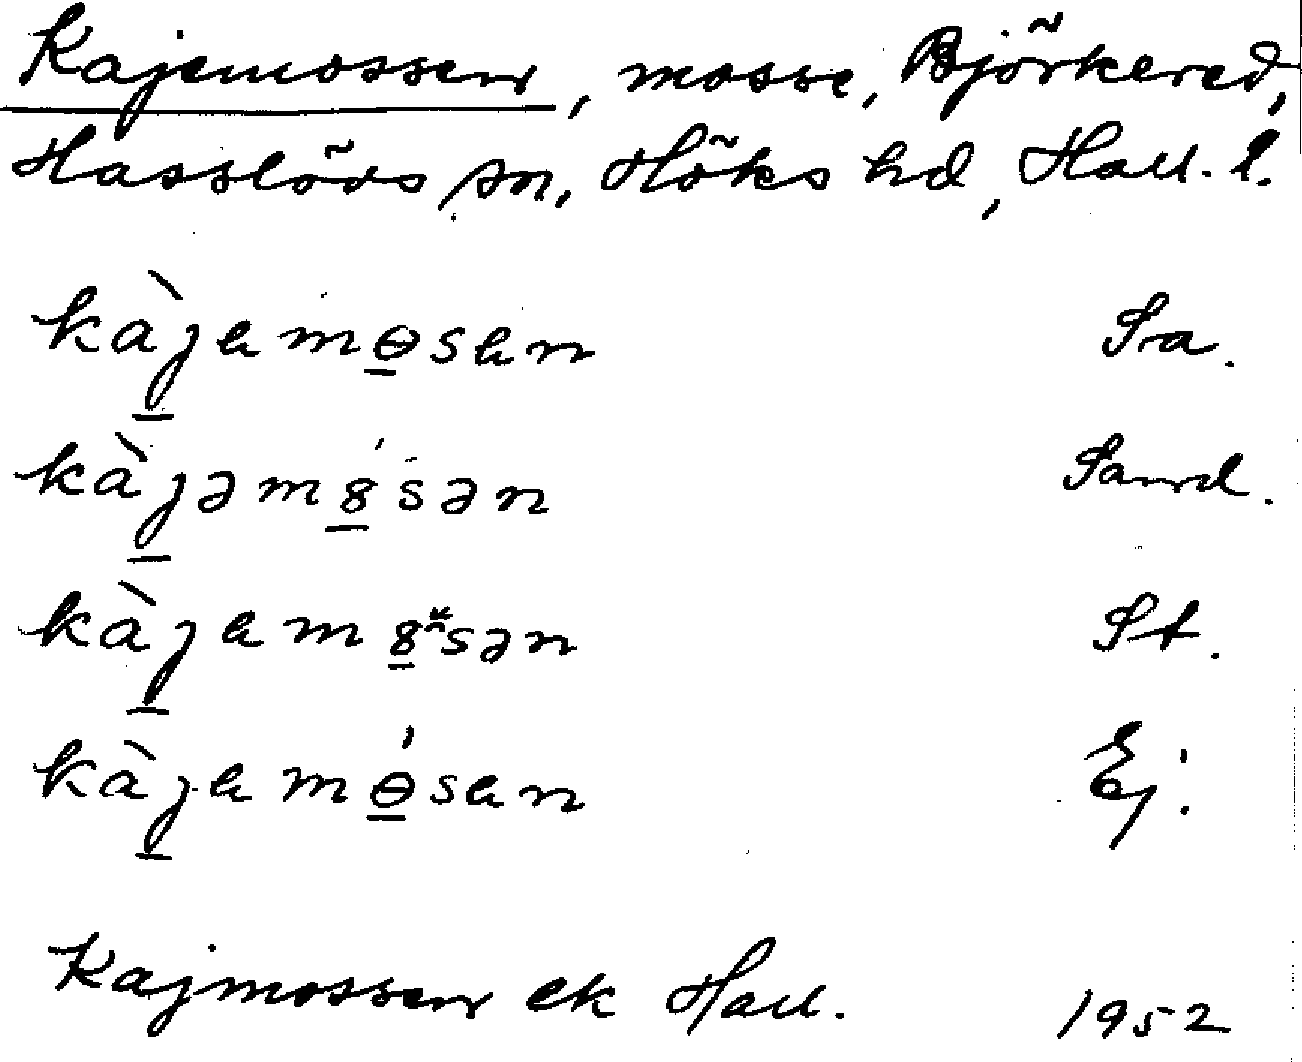 Kajemossen, mosse, Björkered,
Hasslövs sn, Höks hd, Hall. l.
kàjemɵsen Sa.
kàjəm8́sən Sand.
kàjem8sən St.
kàjemɵ́sen Ej.
Kajmossen ek Hall. 1952